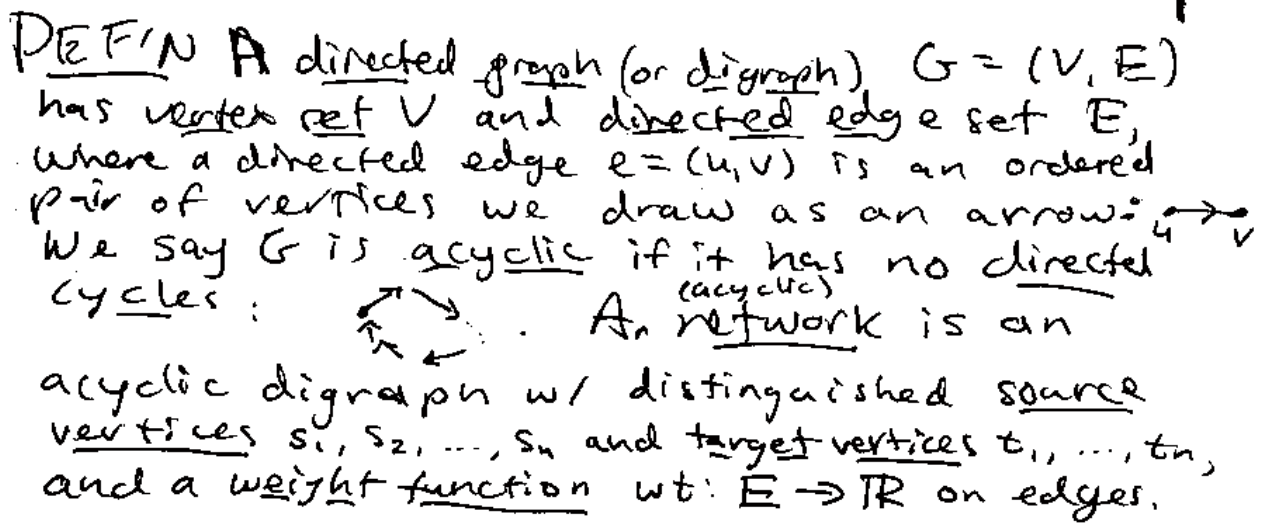 DEF'N A directed graph (or digraph) G = (V, E)
has vertex set V and directed edge set E,
where a directed edge e = (u, v) is an ordered
pair of vertices we draw as an arrow: u v
We say G is acyclic if it has no directed
cycles: . An (acyclic) network is an
acyclic digraph w/ distinguished source
vertices s₁, s₂, ..., sₙ and target vertices t₁, ..., tₙ,
and a weight function wt: E → ℝ on edges.